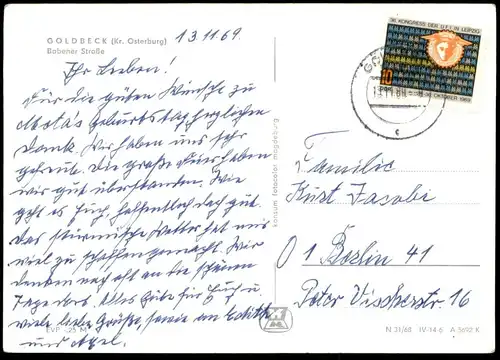 GOLDBECK (Kr. Osterburg)
Babener Straße
13.11.69.
Ihr Lieben!
Für die guten Wünsche zu
Geburtstag herzlichen
Dank. Wir haben uns sehr
gefreut. Die große haben
wir gut überstanden. Wie
geht es Euch, hoffentlich doch gut.
Das stürmische Wetter hat uns
viel zu schaffen gemacht. Wir
denken noch oft an die schönen
Tage dort. Alles Gute für Euch u
viele liebe Grüße, sowie an Edith
und
EVP -,25 M
konsum fotocolor magdeburg
36. KONGRESS DER U.F.I. IN LEIPZIG
10
DDR
OKTOBER 1969
c
Familie
Kurt Jacobi
1 Berlin 41
Peter Vischerstr. 16
N 31/68 IV-14-6 A 5692 K